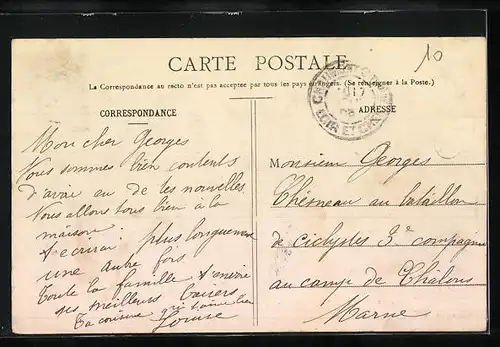 CARTE POSTALE
La Correspondance au recto n'est pas acceptée par tous les pays étrangers. (Se renseigner à la Poste.)
10
CORRESPONDANCE
Mon cher Georges
Nous sommes bien contents
d'avoir eu de tes nouvelles
Nous allons tous bien à la
maison
t'écrirai plus longuement
une autre fois
Toute la famille t'envoie
ses meilleurs baisers
Ta cousine qui t'aime bien
Louise
ADRESSE
LOIR ET CHER
Monsieur Georges
Thesneau au bataillon
de ciclystes 3e compagnie
au camp de Châlons
Marne